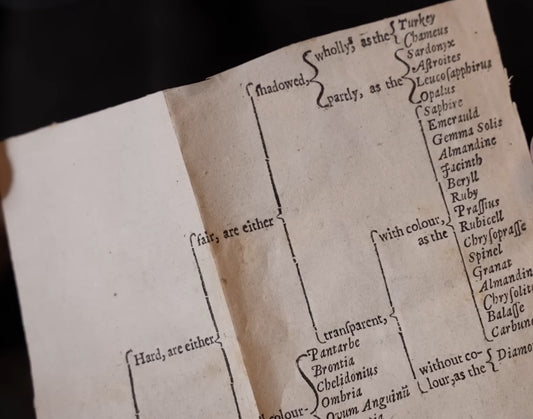 wholly, as the
Turkey
Chameus
shadowed,
Sardonyx
Aſtroites
partly, as the
Leucoſapphirus
Opalus
Saphire
Emerauld
Gemma Solis
Almandine
Jacinth
Beryll
Ruby
fair, are either
with colour,
as the
Praſſius
Rubicell
Chryſopraſſe
Spinel
Granat
Almandin
Chryſolit
Balaſſe
Carbunc
tranſparent,
Hard, are either
Pantarbe
Brontia
Chelidonius
Ombria
Ovum Anguinū
without co-
lour, as the
Diamo
colour-